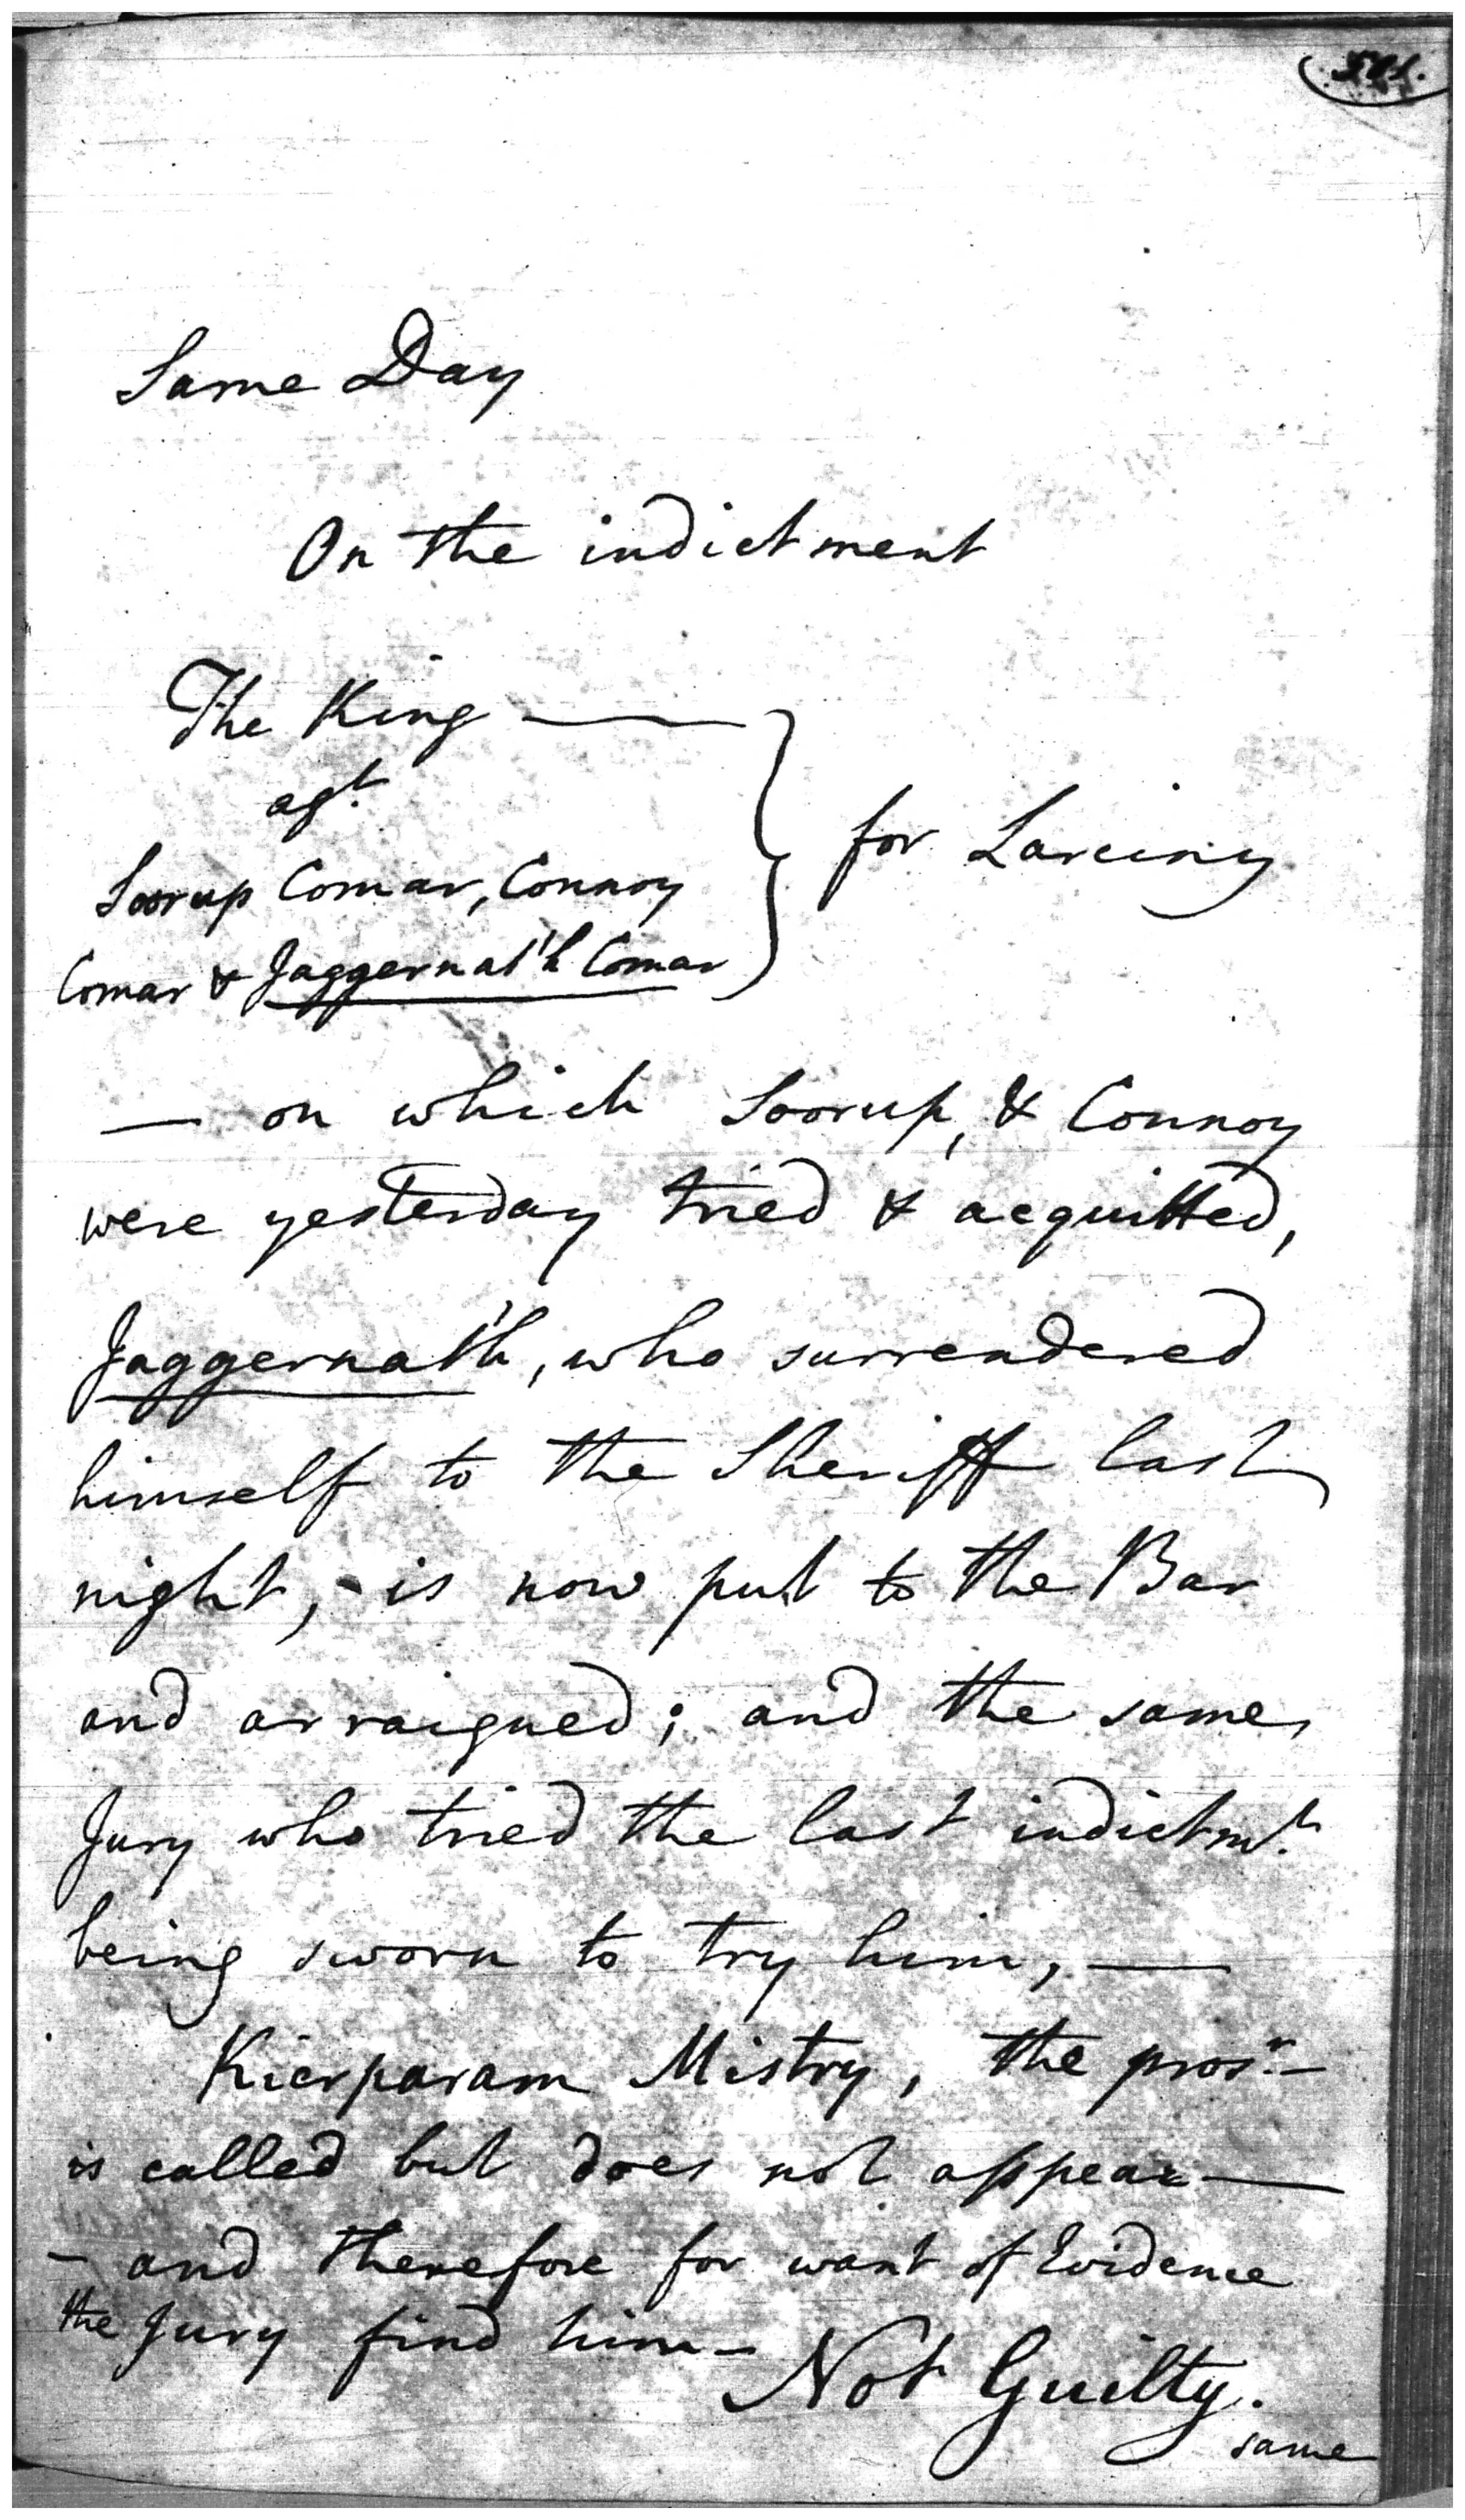 Same Day
On the indictment
The King
agt.
Soorup Comar, Connoy
Comar & Jaggernat'h Comar
for Larciny
— on which Soorup, & Connoy
were yesterday tried & acquitted,
Jaggernat'h, who surrendered
himself to the Sheriff last
night, - is now put to the Bar
and arraigned; and the same
Jury who tried the last indictmt.
being sworn to try him, —
Kierparam Mistry, the prosr. —
is called but does not appear —
- and therefore for want of Evidence
the Jury find him -
Not Guilty.
same